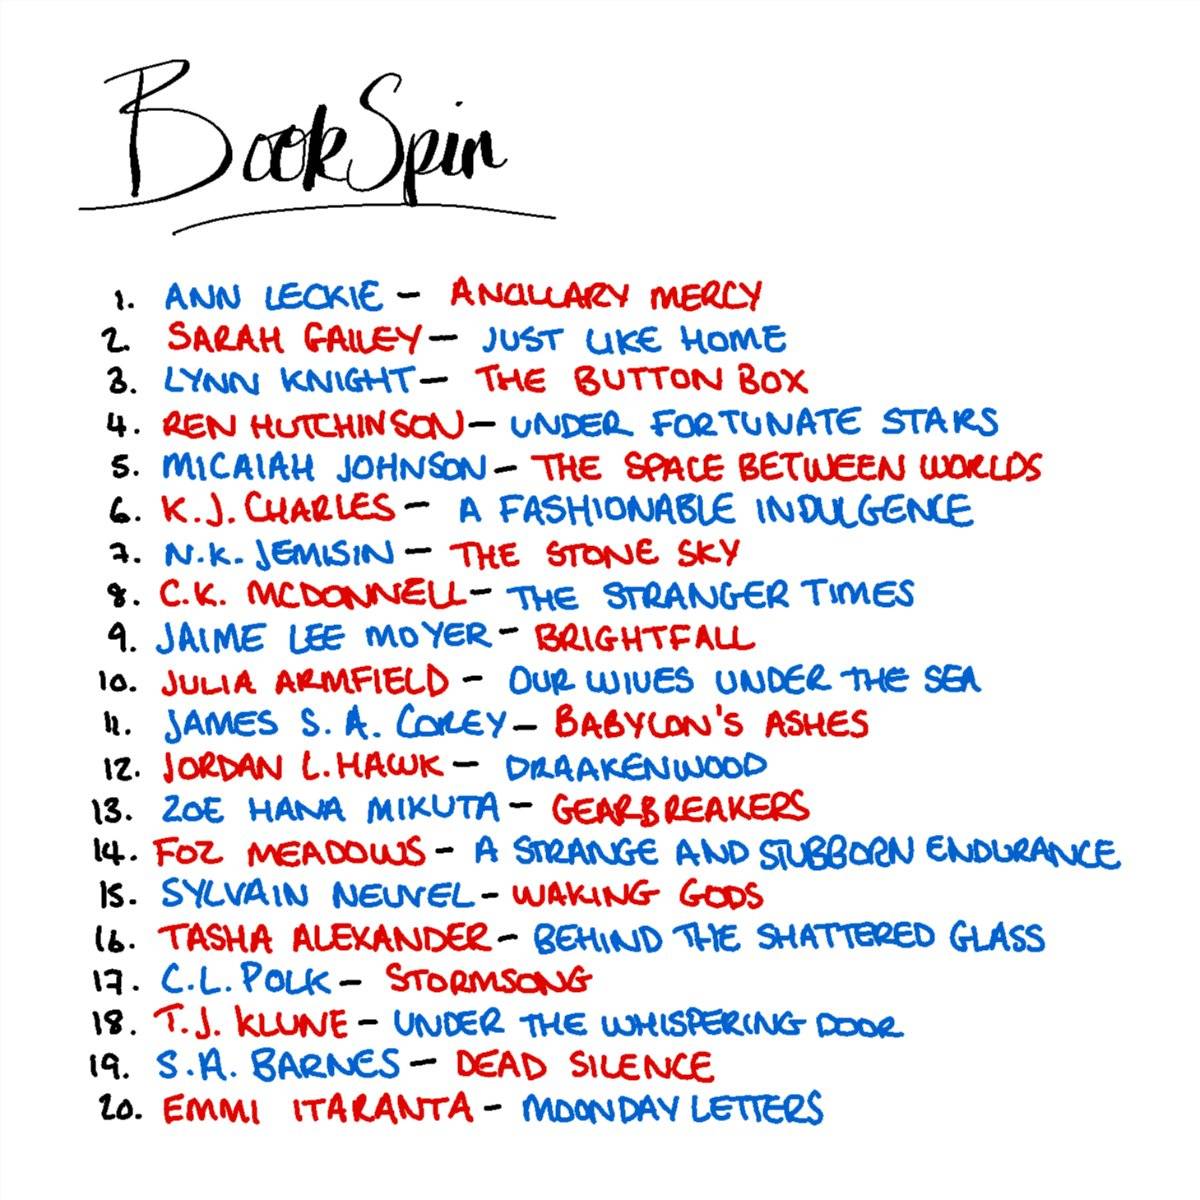 BookSpin
1. ANN LECKIE - ANCILLARY MERCY
2. SARAH GAILEY - JUST LIKE HOME
3. LYNN KNIGHT - THE BUTTON BOX
4. REN HUTCHINSON - UNDER FORTUNATE STARS
5. MICAIAH JOHNSON - THE SPACE BETWEEN WORLDS
6. K.J. CHARLES - A FASHIONABLE INDULGENCE
7. N.K. JEMISIN - THE STONE SKY
8. C.K. MCDONNELL - THE STRANGER TIMES
9. JAIME LEE MOYER - BRIGHTFALL
10. JULIA ARMFIELD - OUR WIVES UNDER THE SEA
11. JAMES S. A. COREY - BABYLON'S ASHES
12. JORDAN L. HAWK - DRAAKENWOOD
13. ZOE HANA MIKUTA - GEARBREAKERS
14. FOZ MEADOWS - A STRANGE AND STUBBORN ENDURANCE
15. SYLVAIN NEUVEL - WAKING GODS
16. TASHA ALEXANDER - BEHIND THE SHATTERED GLASS
17. C.L. POLK - STORMSONG
18. T.J. KLUNE - UNDER THE WHISPERING DOOR
19. S.A. BARNES - DEAD SILENCE
20. EMMI ITARANTA - MOONDAY LETTERS